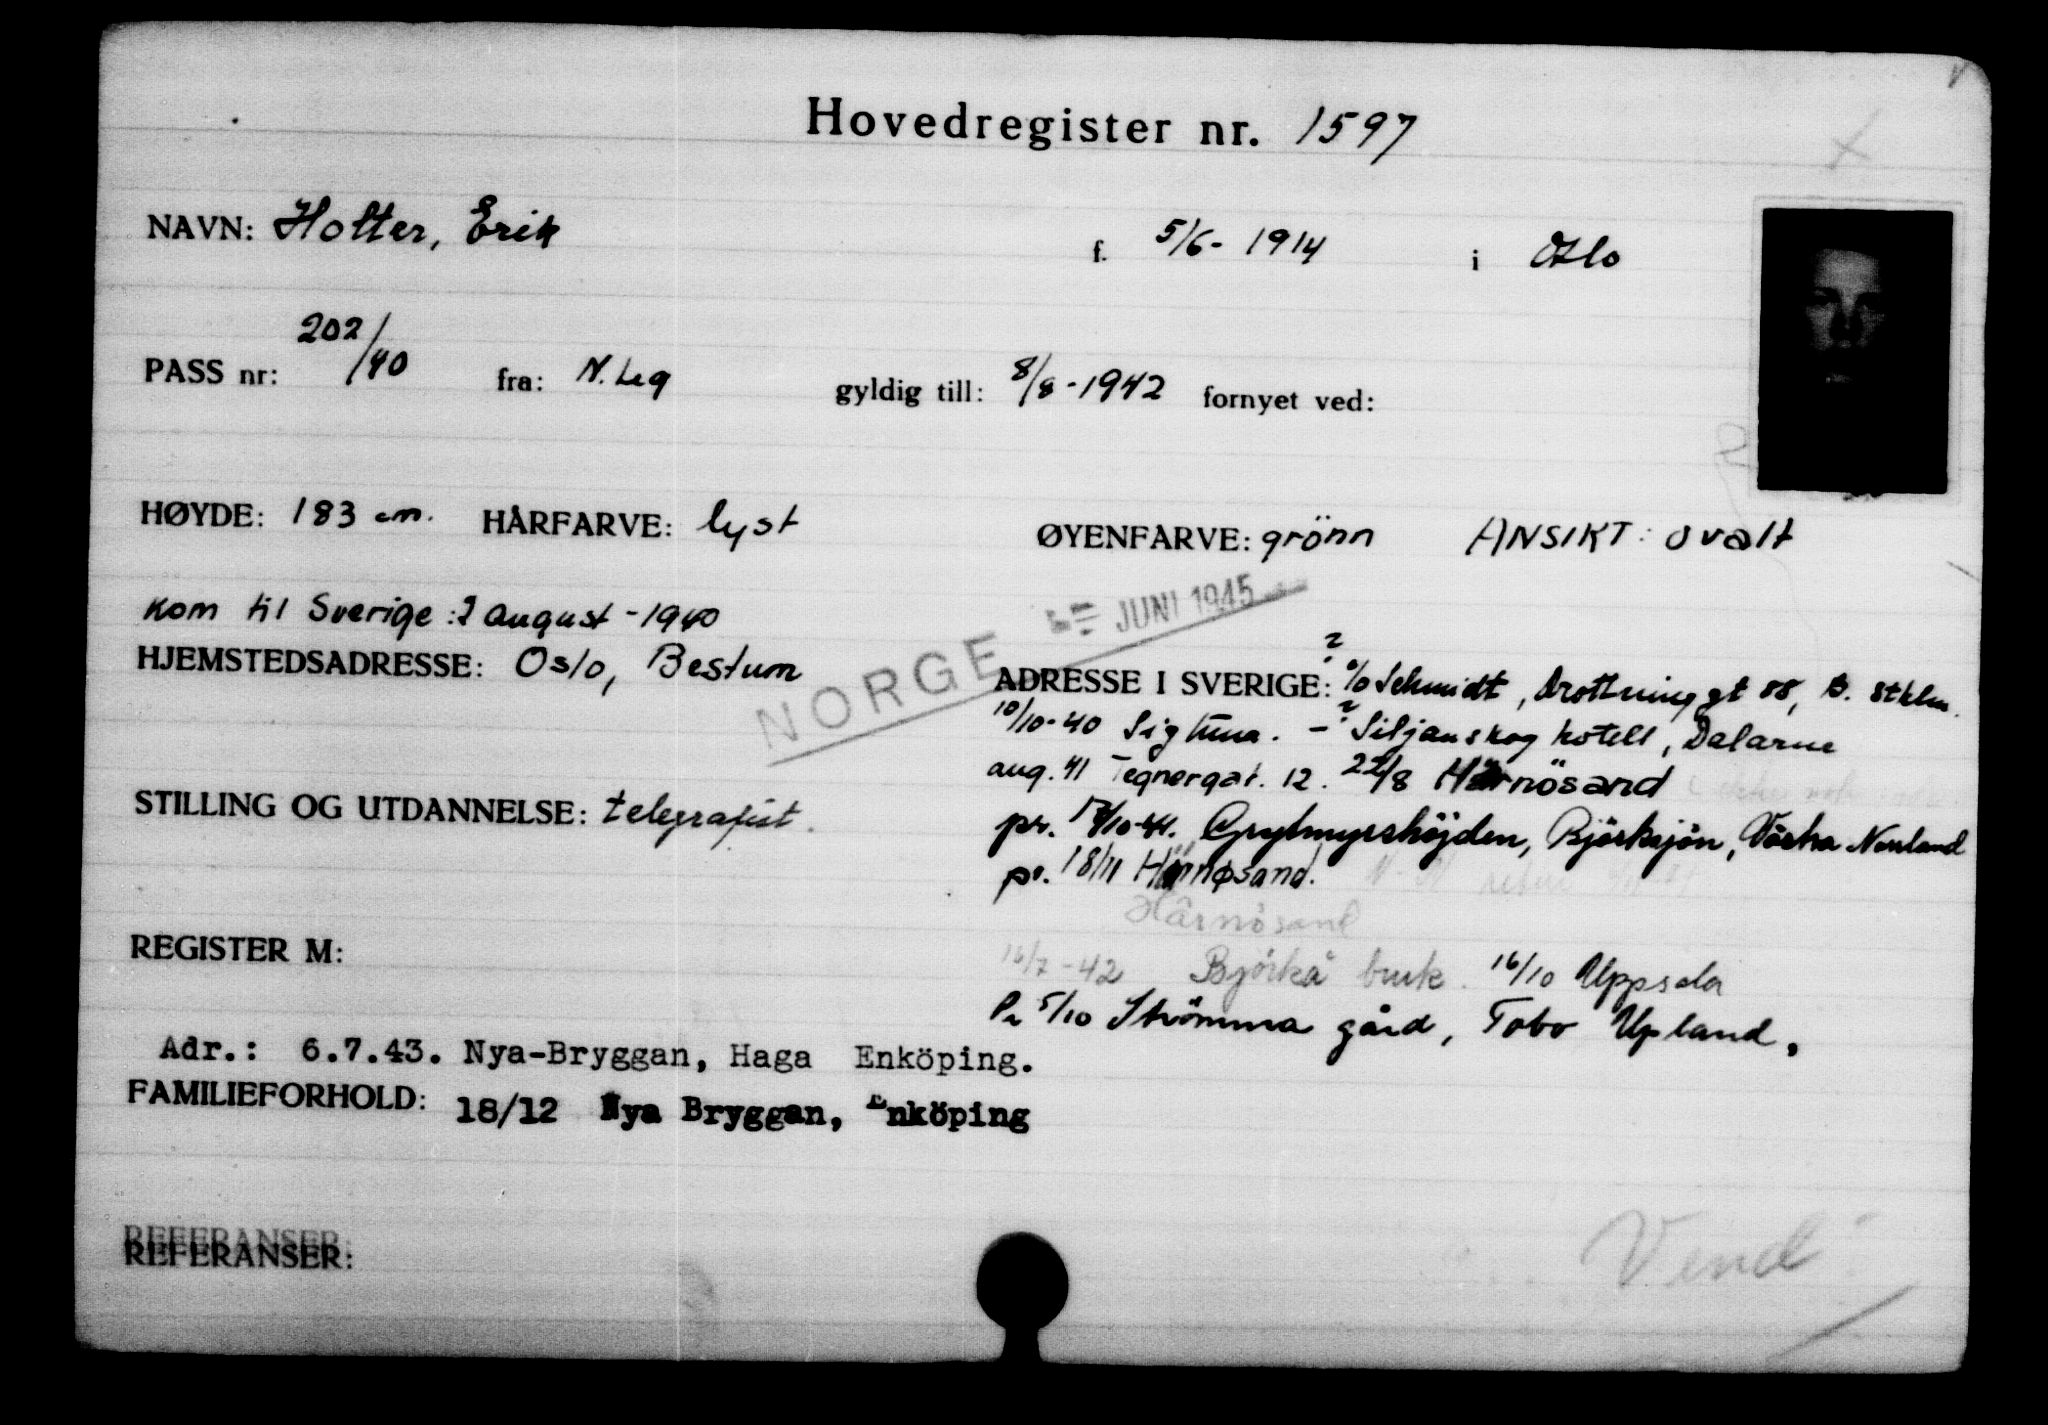 Hovedregister nr. 1597
NAVN: Holter, Erik f. 5/6- 1914 i Oslo
PASS nr: 202/40 fra: N. Leg gyldig till: 8/8-1942 fornyet ved:
HØYDE: 183 cm. HÅRFARVE: lyst ØYENFARVE: grönn ANSIKT: ovalt
Kom til Sverige: 2 august-1940
NORGE JUNI 1945
HJEMSTEDSADRESSE: Oslo, Bestum
ADRESSE I SVERIGE: ? c/o Schmidt, Drottninggt 88, B. Sthlm.
10/10-40 Sigtuna. - ? Siljanskog hotell, Dalarne
aug. 41 Tegnergat. 12. 22/8 Härnösand
STILLING OG UTDANNELSE: telegrafist.
pr. 17/10-41. Grytmyrshöjden, Björksjön, Västra Norrland
pr. 18/11 Härnøsand.
Härnösand
REGISTER M:
16/7-42 Björkå bruk. 16/10 Uppsala
Pr 5/10 Strömma gård, Tobo Upland.
Adr.: 6.7.43. Nya-Bryggan, Haga Enköping.
FAMILIEFORHOLD: 18/12 Nya Bryggan, Enköping
REFERANSER:
REFERANSER:
Vend